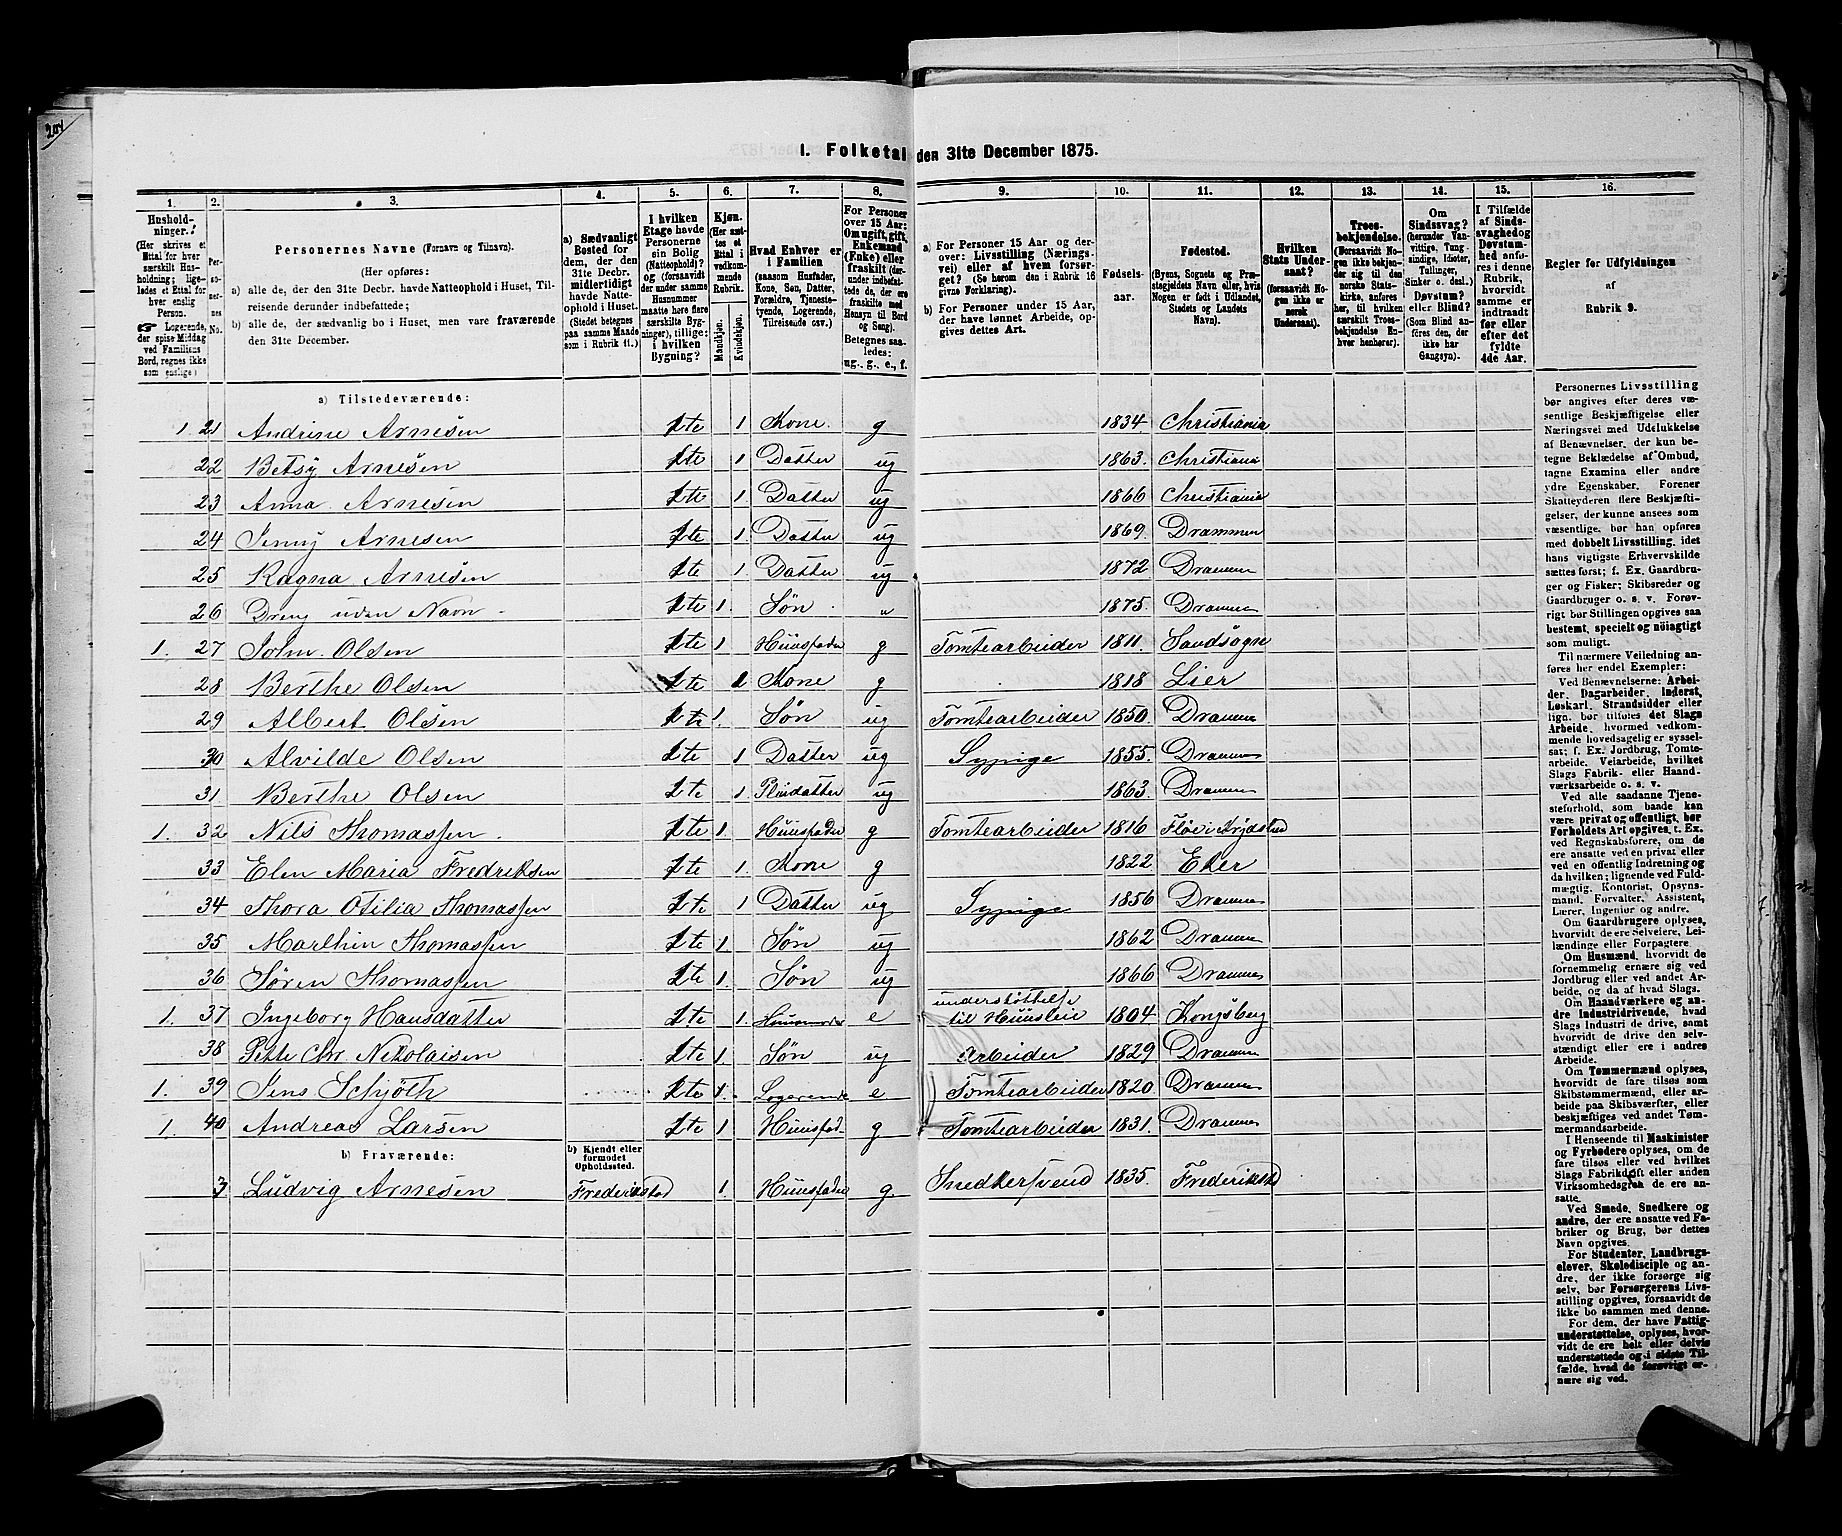 204
1. Folketal den 31te December 1875.
1. 2. 3. 4. 5. 6. 7. 8. 9. 10. 11. 12. 13. 14. 15. 16.
Husholdninger. (Her skrives et Ettal for hver særskilt Husholdning; ligeledes et Ettal for hver enslig Person. ☞ Logerende, der spise Middag ved Familiens Bord, regnes ikke som enslige)
Personernes No.
Personernes Navne (Fornavn og Tilnavn).
(Her opføres:
a) alle de, der den 31te Decbr. havde Natteophold i Huset, Tilreisende derunder indbefattede;
b) alle de, der sædvanlig bo i Huset, men vare fraværende den 31te December.
a) Sædvanligt Bosted for dem, der den 31te Decbr. midlertidigt havde Natteophold i Huset. (Stedet betegnes paa samme Maade som i Rubrik 11.)
I hvilken Etage havde Personerne sin Bolig (Natteophold)? og (forsaavidt der under samme Husnummer maatte høre flere særskilte Bygninger), tillige: i hvilken Bygning?
Kjøn. (Her sættes et Ettal i vedkommende Rubrik.
Mandkjøn. Kvindekjøn.
Hvad Enhver er i Familien (saasom Husfader, Kone, Søn, Datter, Forældre, Tjenestetyende, Logerende, Tilreisende osv.)
For Personer over 15 Aar: Om ugift, gift, Enkemand (Enke) eller fraskilt (derunder indbefattede de, der ere fraskilte med Hensyn til Bord og Seng). Betegnes saaledes: ug., g., e., f.
a) For Personer 15 Aar og derover: Livsstilling (Næringsvei) eller af hvem forsørget? (Se herom den i Rubrik 16 givne Forklaring).
b) For Personer under 15 Aar, der have lønnet Arbeide, opgives dettes Art.
Fødselsaar.
Fødested. (Byens, Sognets og Præstegjeldets Navn eller, hvis Nogen er født i Udlandet, Stedets og Landets Navn).
Hvilken Stats Undersaat? (forsaavidt Nogen ikke er norsk Undersaat).
Troesbekjendelse. (Forsaavidt Nogen ikke bekjender sig til den norske Statskirke, anføres her, til hvilken særskilt Troesbekjendelse Enhver henhører).
Om Sindssvag? (herunder Vanvittige, Tungsindige, Idioter, Tullinger, Sinker o. desl.) Døvstum? eller Blind? (Som Blind anføres den, der ikke har Gangsyn).
I Tilfælde af Sindssvaghed og Døvstumhed anføres i denne Rubrik, hvorvidt samme er indtraadt før eller efter det fyldte 4de Aar.
Regler for Udfyldningen
af
Rubrik 9.
a) Tilstedeværende:
1. 21 Andrine Arnesen 1te 1 Kone. g 1834 Christiania
22 Betsy Arnesen 1te 1 Datter ug 1863. Christiania
23 Anna Arnesen 1te 1 Datter ug 1866 Christiania
24 Jenny Arnesen 1te 1. Datter ug 1869. Drammen
25 Ragna Arnesen 1te 1. Datter ug 1872 Drammen
26 Dreng uden Navn - 1te 1. Søn " 1875. Drammen
1. 27 John Olsen 1te 1 Huusfader g Tomtearbeider 1811. Sandsogne
28 Berthe Olsen 1te 1 Kone g 1818 Lier
29 Albert Olsen 1te 1. Søn ug Tomtearbeider 1850. Drammen
30 Alvilde Olsen 1te 1 Datter ug Sypige 1855. Drammen
31 Berthe Olsen 1te 1 Pleiedatter ug 1863. Drammen
1. 32 Nils Thomassen. 1te 1. Huusfader g Tomtearbeider 1816
33 Elen Maria Fredriksen 1te 1. Kone g 1822. Eker
34 Thora Otilia Thomassen 1te 1 Datter ug Sypige 1856 Drammen
35 Marthin Thomassen 1te 1. Søn ug 1862 Drammen
36 Søren Thomassen 1te 1. Søn ug 1866 Drammen
1. 37 Ingeborg Hansdatter 1te 1. Huusmoder e understøttelse til Huusleie 1804 Kongsberg
38 Petter Chr. Nikolaisen 1te 1. Søn ug Arbeider 1829 Drammen
1. 39 Jens Schjøth 1te 1. Logerende e Tomtearbeider 1820. Drammen
1. 40 Andreas Larsen 1te 1 Huusfad. g Tomtearbeider 1831. Drammen
b) Fraværende:
b) Kjendt eller formodet Opholdssted.
3 Ludvig Arnesen Frederikstad 1. Huusfader g Snedkersvend 1835. Frederikstad
Personernes Livsstilling bør angives efter deres væsentlige Beskjæftigelse eller Næringsvei med Udelukkelse af Benævnelser, der kun betegne Beklædelse af Ombud, tagne Examina eller andre ydre Egenskaber. Forener Skatteyderen flere Beskjæftigelser, der kunne ansees som væsentlige, bør han opføres med dobbelt Livsstilling, idet hans vigtigste Erhvervskilde sættes først; f. Ex. Gaardbruger og Fisker; Skibsreder og Gaardbruger o. s. v. Forøvrigt bør Stillingen opgives saa bestemt, specielt og nøiagtigt som muligt.
Til nærmere Veiledning anføres her endel Exempler:
Ved Benævnelserne: Arbeider, Dagarbeider, Inderst, Løskarl, Strandsidder eller lign. bør tilføies det Slags Arbeide, hvormed vedkommende hovedsagelig er sysselsat; f. Ex. Jordbrug, Tomtearbeide, Veiarbeide, hvilket Slags Fabrik- eller Haandværksarbeide o. s. v.
Ved alle saadanne Tjenesteforhold, som baade kan være privat og offentligt, bør Forholdets Art opgives, t. Ex. ved Regnskabsførere, om de ere ansatte ved en privat eller ved en offentlig Indretning og da hvilken; lignende ved Fuldmægtig, Kontorist, Opsynsmand, Forvalter, Assistent, Lærer, Ingeniør og andre.
Om Gaardbrugere oplyses, hvorvidt de ere Selveiere, Leilændinge eller Forpagtere.
Om Husmænd, hvorvidt de fornemmelig ernære sig ved Jordbrug eller ved andet Arbeide, og da af hvad Slags.
Om Haandværkere og andre Industridrivende, hvad Slags Industri de drive, samt hvorvidt de drive den selvstændigt eller ere i andres Arbeide.
Om Tømmermænd oplyses, hvorvidt de fare tilsøs som Skibstømmermænd, eller arbeide paa Skibsværfter, eller beskjæftiges ved andet Tømmermandsarbeide.
I Henseende til Maskinister og Fyrbødere oplyses, om de fare tilsøs eller ved hvilket Slags Fabrikdrift eller anden Virksomhedsgren de ere ansatte.
Ved Smede, Snedkere og andre, der ere ansatte ved Fabriker og Brug, bør dettes Navn opgives.
For Studenter, Landbrugselever, Skoledisciple og andre, der ikke forsørge sig selv, bør Forsørgerens Livsstilling opgives, forsaavidt de ikke bo sammen med denne.
For dem, der have Fattigunderstøttelse, oplyses, hvorvidt de ere helt eller delvis understøttede og i sidste Tilfælde, hvad de forøvrigt ernære sig ved.